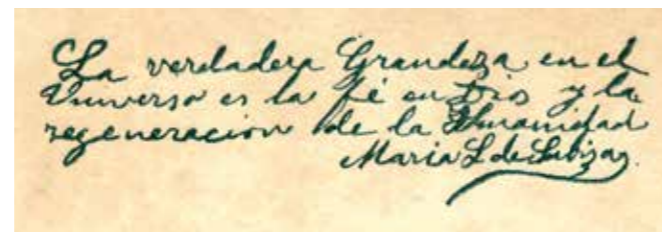 La verdadera Grandeza en el
Universo es la fé en Dios y la
regeneracion de la Humanidad
Maria L de